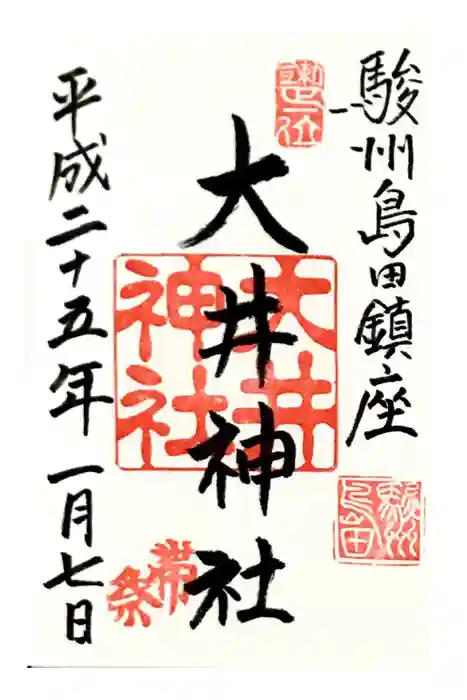 駿州島田鎮座
大井神社
平成二十五年一月七日
大井神社
駿州島田
帯祭